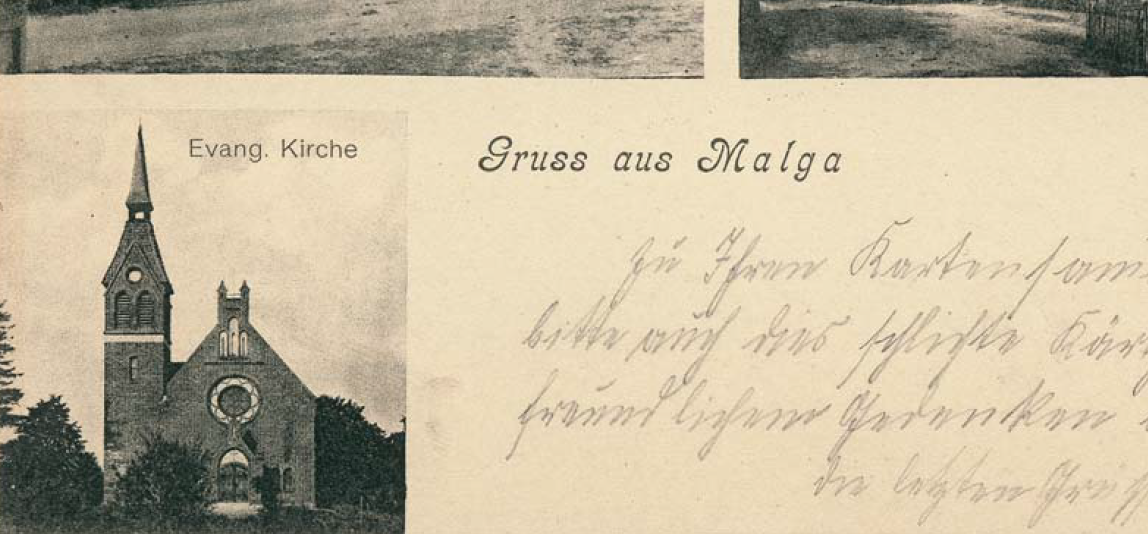 Evang. Kirche
Gruss aus Malga
Zu Ihren Kartensam
bitte auch dies schlichte Kär
freundlichem Gedenken
die letzten Grüß